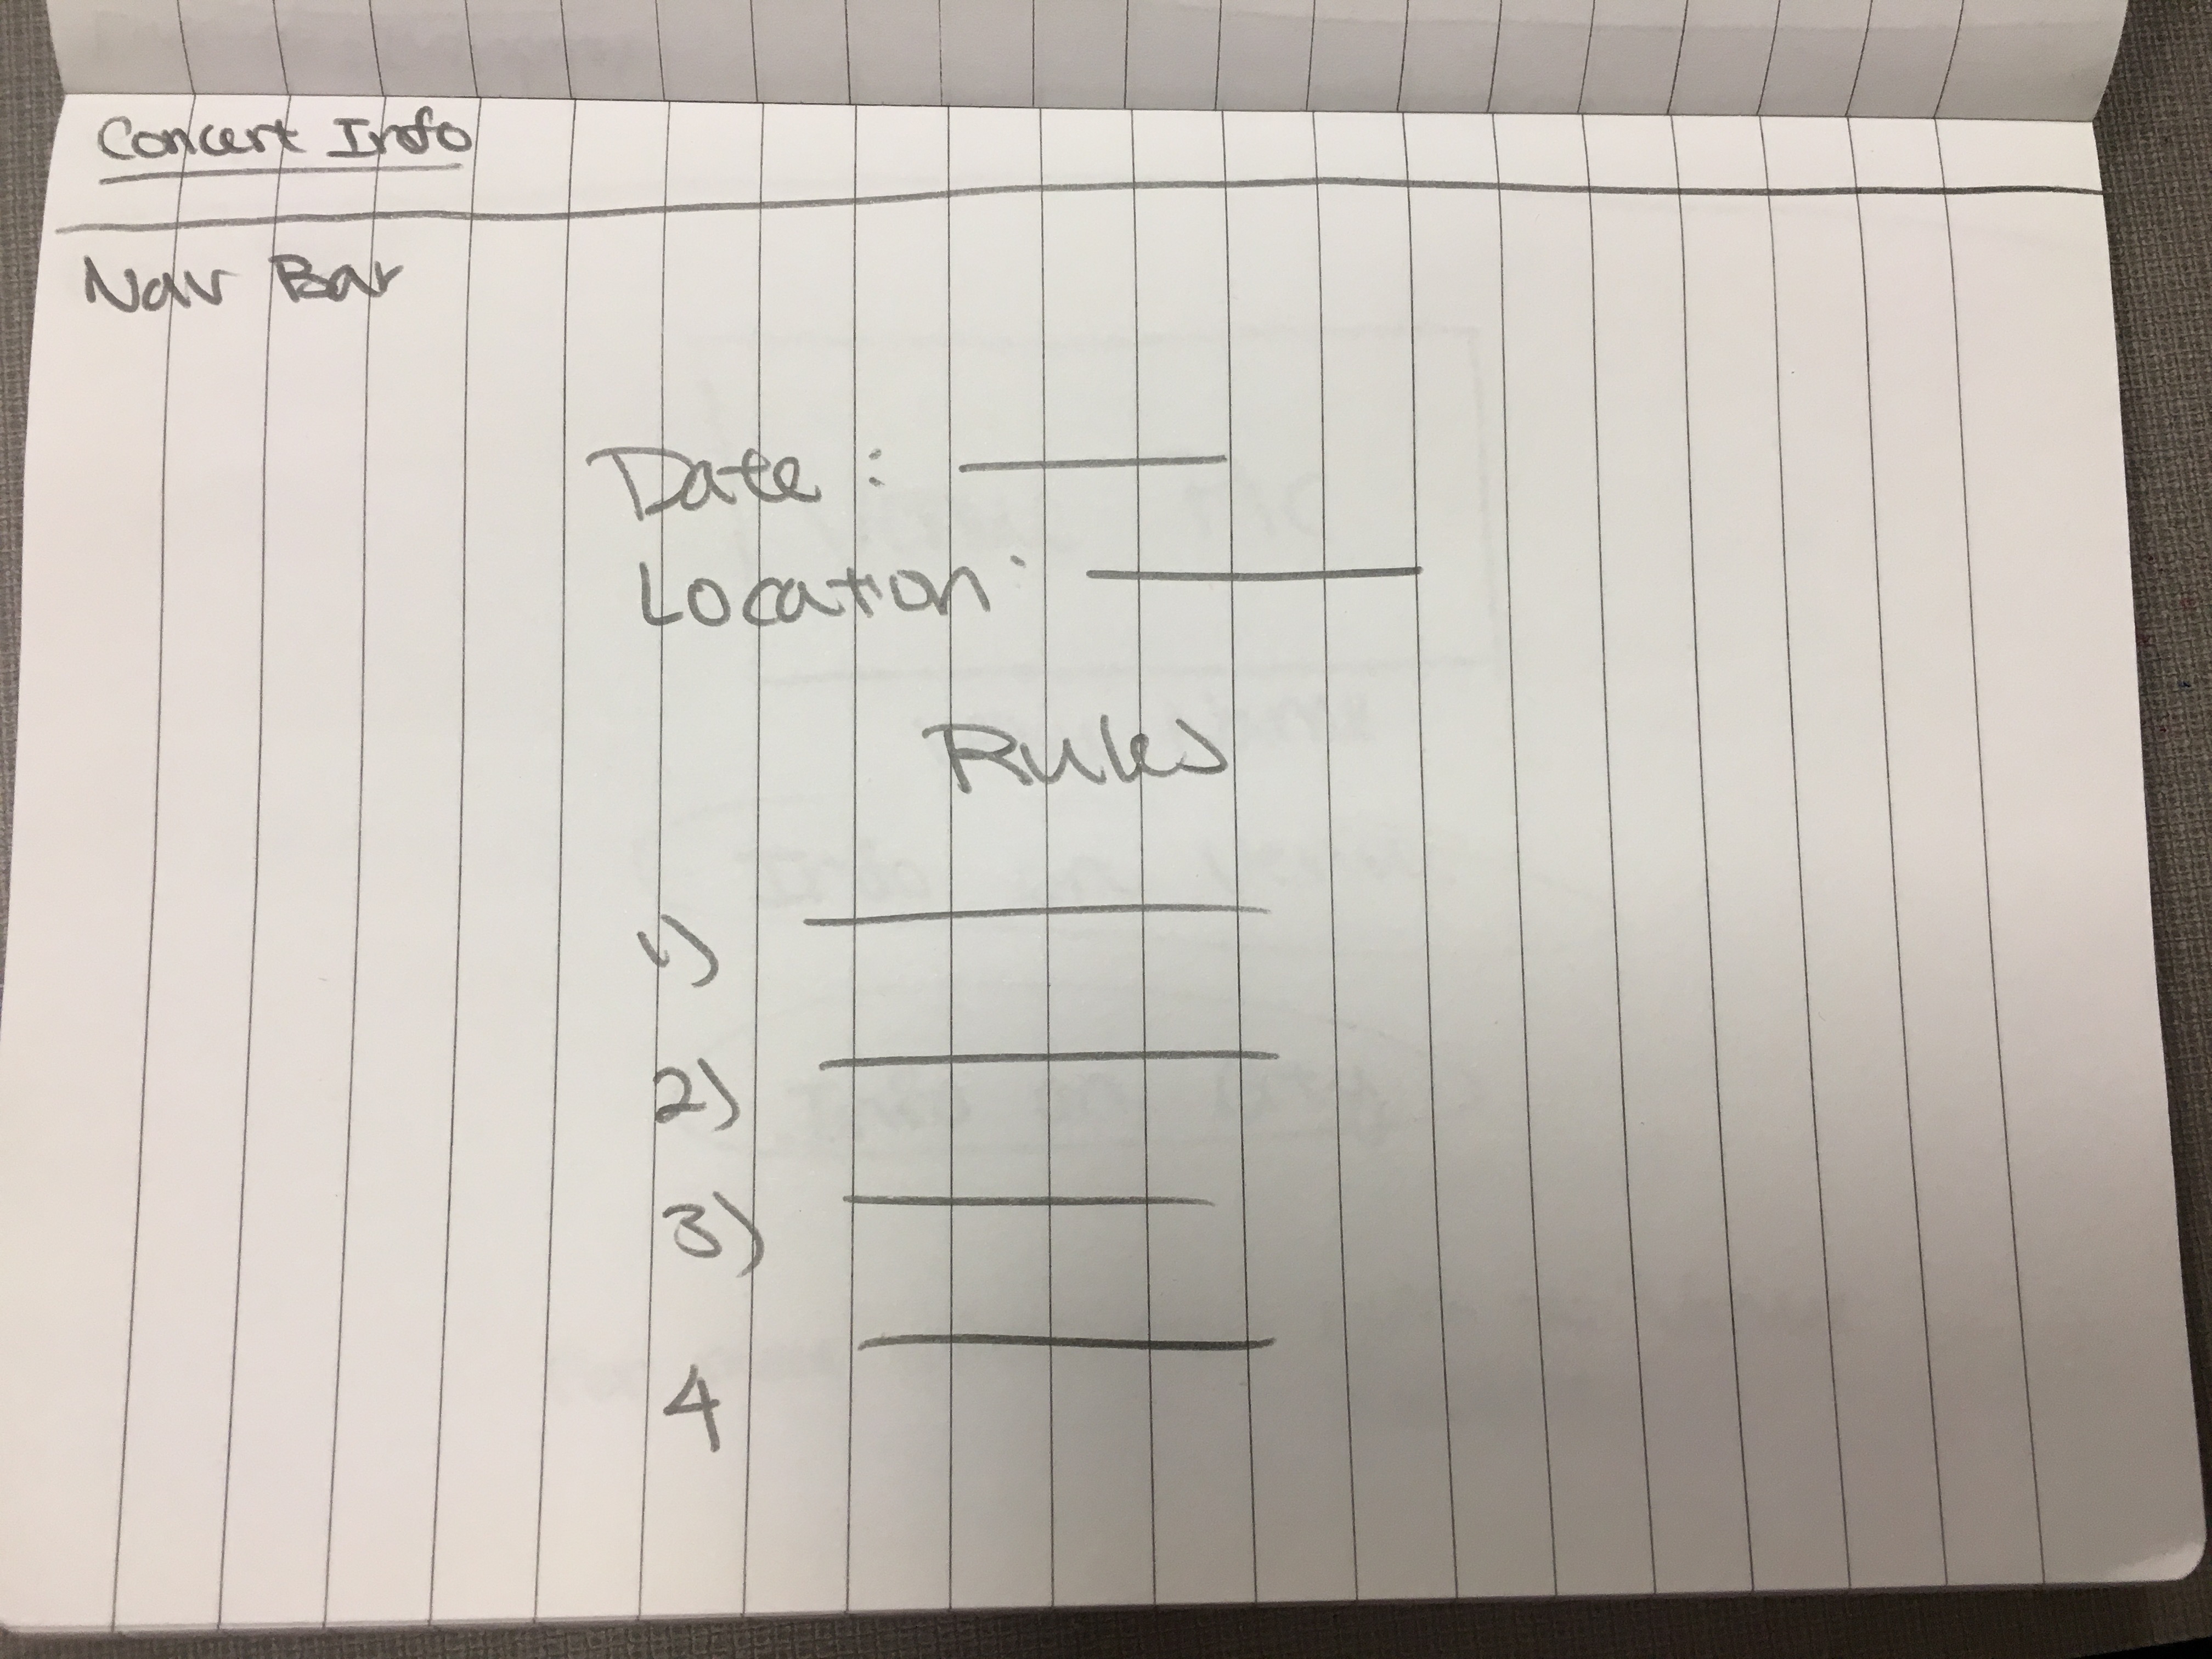 Concert Info
Nav Bar
Date :
Location:
Rules
1)
2)
3)
4